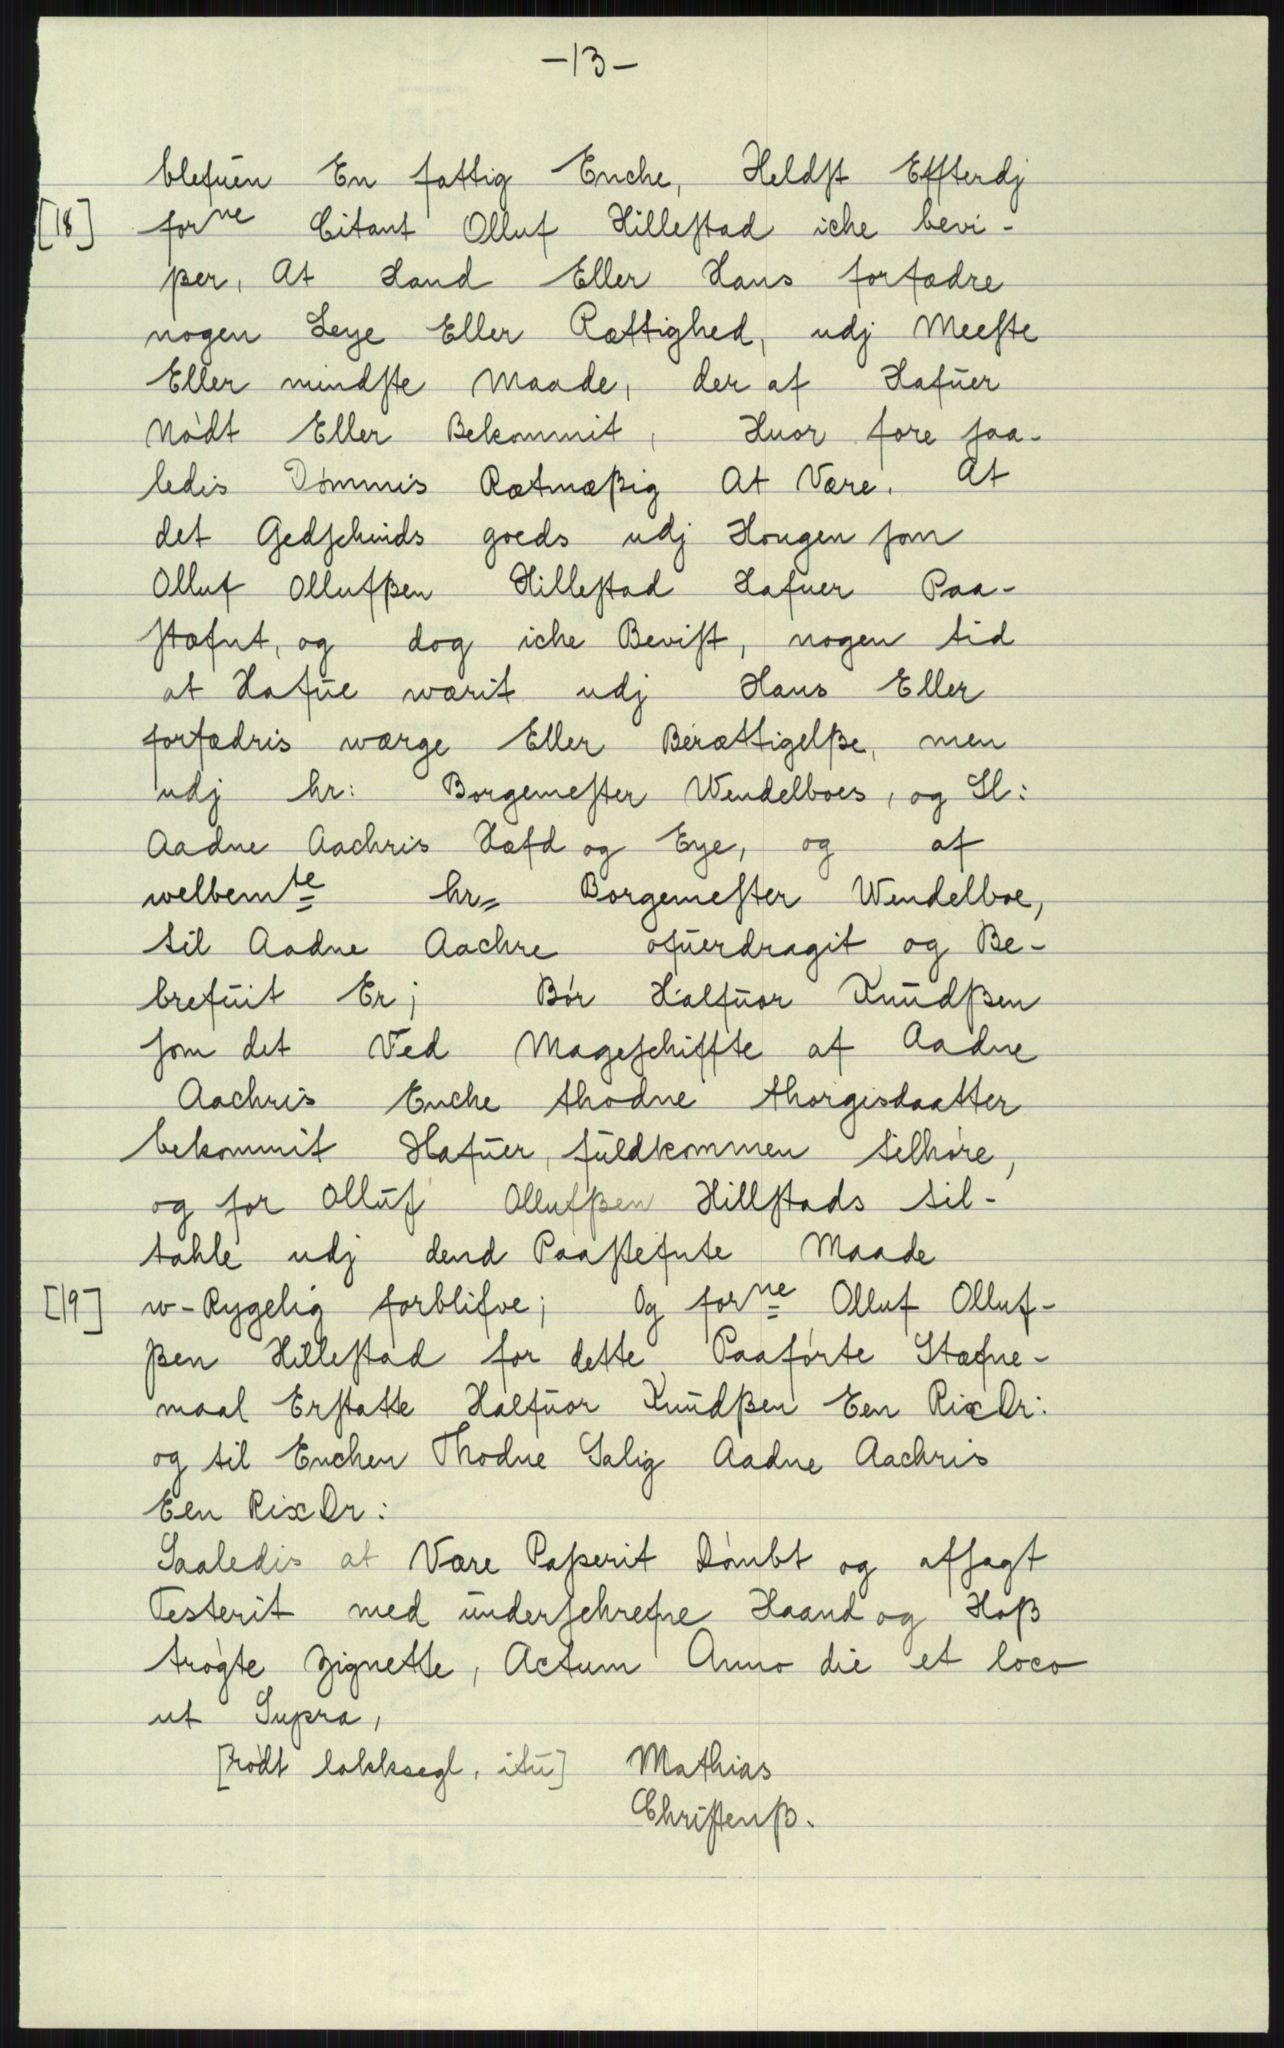 -13-
blefuen En fattig Enche, Heldſt Effterdj
[18] forne Citant Olluf Hilleſtad iche bevi-
ßer, At Hand Eller Hans forfædre
nogen Leye Eller Rættighed, udj Meeſte
Eller mindſte Maade, der af Hafuer
Nódt Eller Bekommit, Huor fore ſaa-
ledis Dómmis Rætmæßig At Være. At
det Gedſchinds goeds udj Hougen ſom
Olluf Ollufßen Hilleſtad Hafuer Paa-
ſtæfnt, og dog iche Beviſt, nogen tid
at Hafue wærit udj Hans Eller
forfædris wærge Eller Berættigelße, men
udj hr: Borgemeſter Wendelboes, og Sl:
Aadne Aachris Hæfd og Eye, og af
welbemte hr= Borgemeſter Wendelboe,
til Aadne Aachre ofuerdragit og Be-
brefuit Er; Bór Halfuor Knudßen
ſom det Ved Mageſchiffte af Aadne
Aachris Enche thodne thorgisdaatter
bekommit Hafuer, fuldkommen tilhóre,
og for Olluf Ollufßen Hillſtads til-
tahle udj dend Paaſtefnte Maade
[19] w-Rygelig forblifve; Og forne Olluf Olluf-
ßen Hilleſtad for dette Paafórte Stæfne-
maal Erſtatte Halfuor Knudßen Een RixDr:
og til Enchen Thodne Salig Aadne Aachris
Een RixDr:
Saaledis at Være Paßerit Dómbt og afſagt
Testerit med underſchrefne Haand og Hoß
trógte Zignette, Actum Anno die et loco
ut Supra,
[ródt lakksegl, itu] Mathias
Chriſtenß.